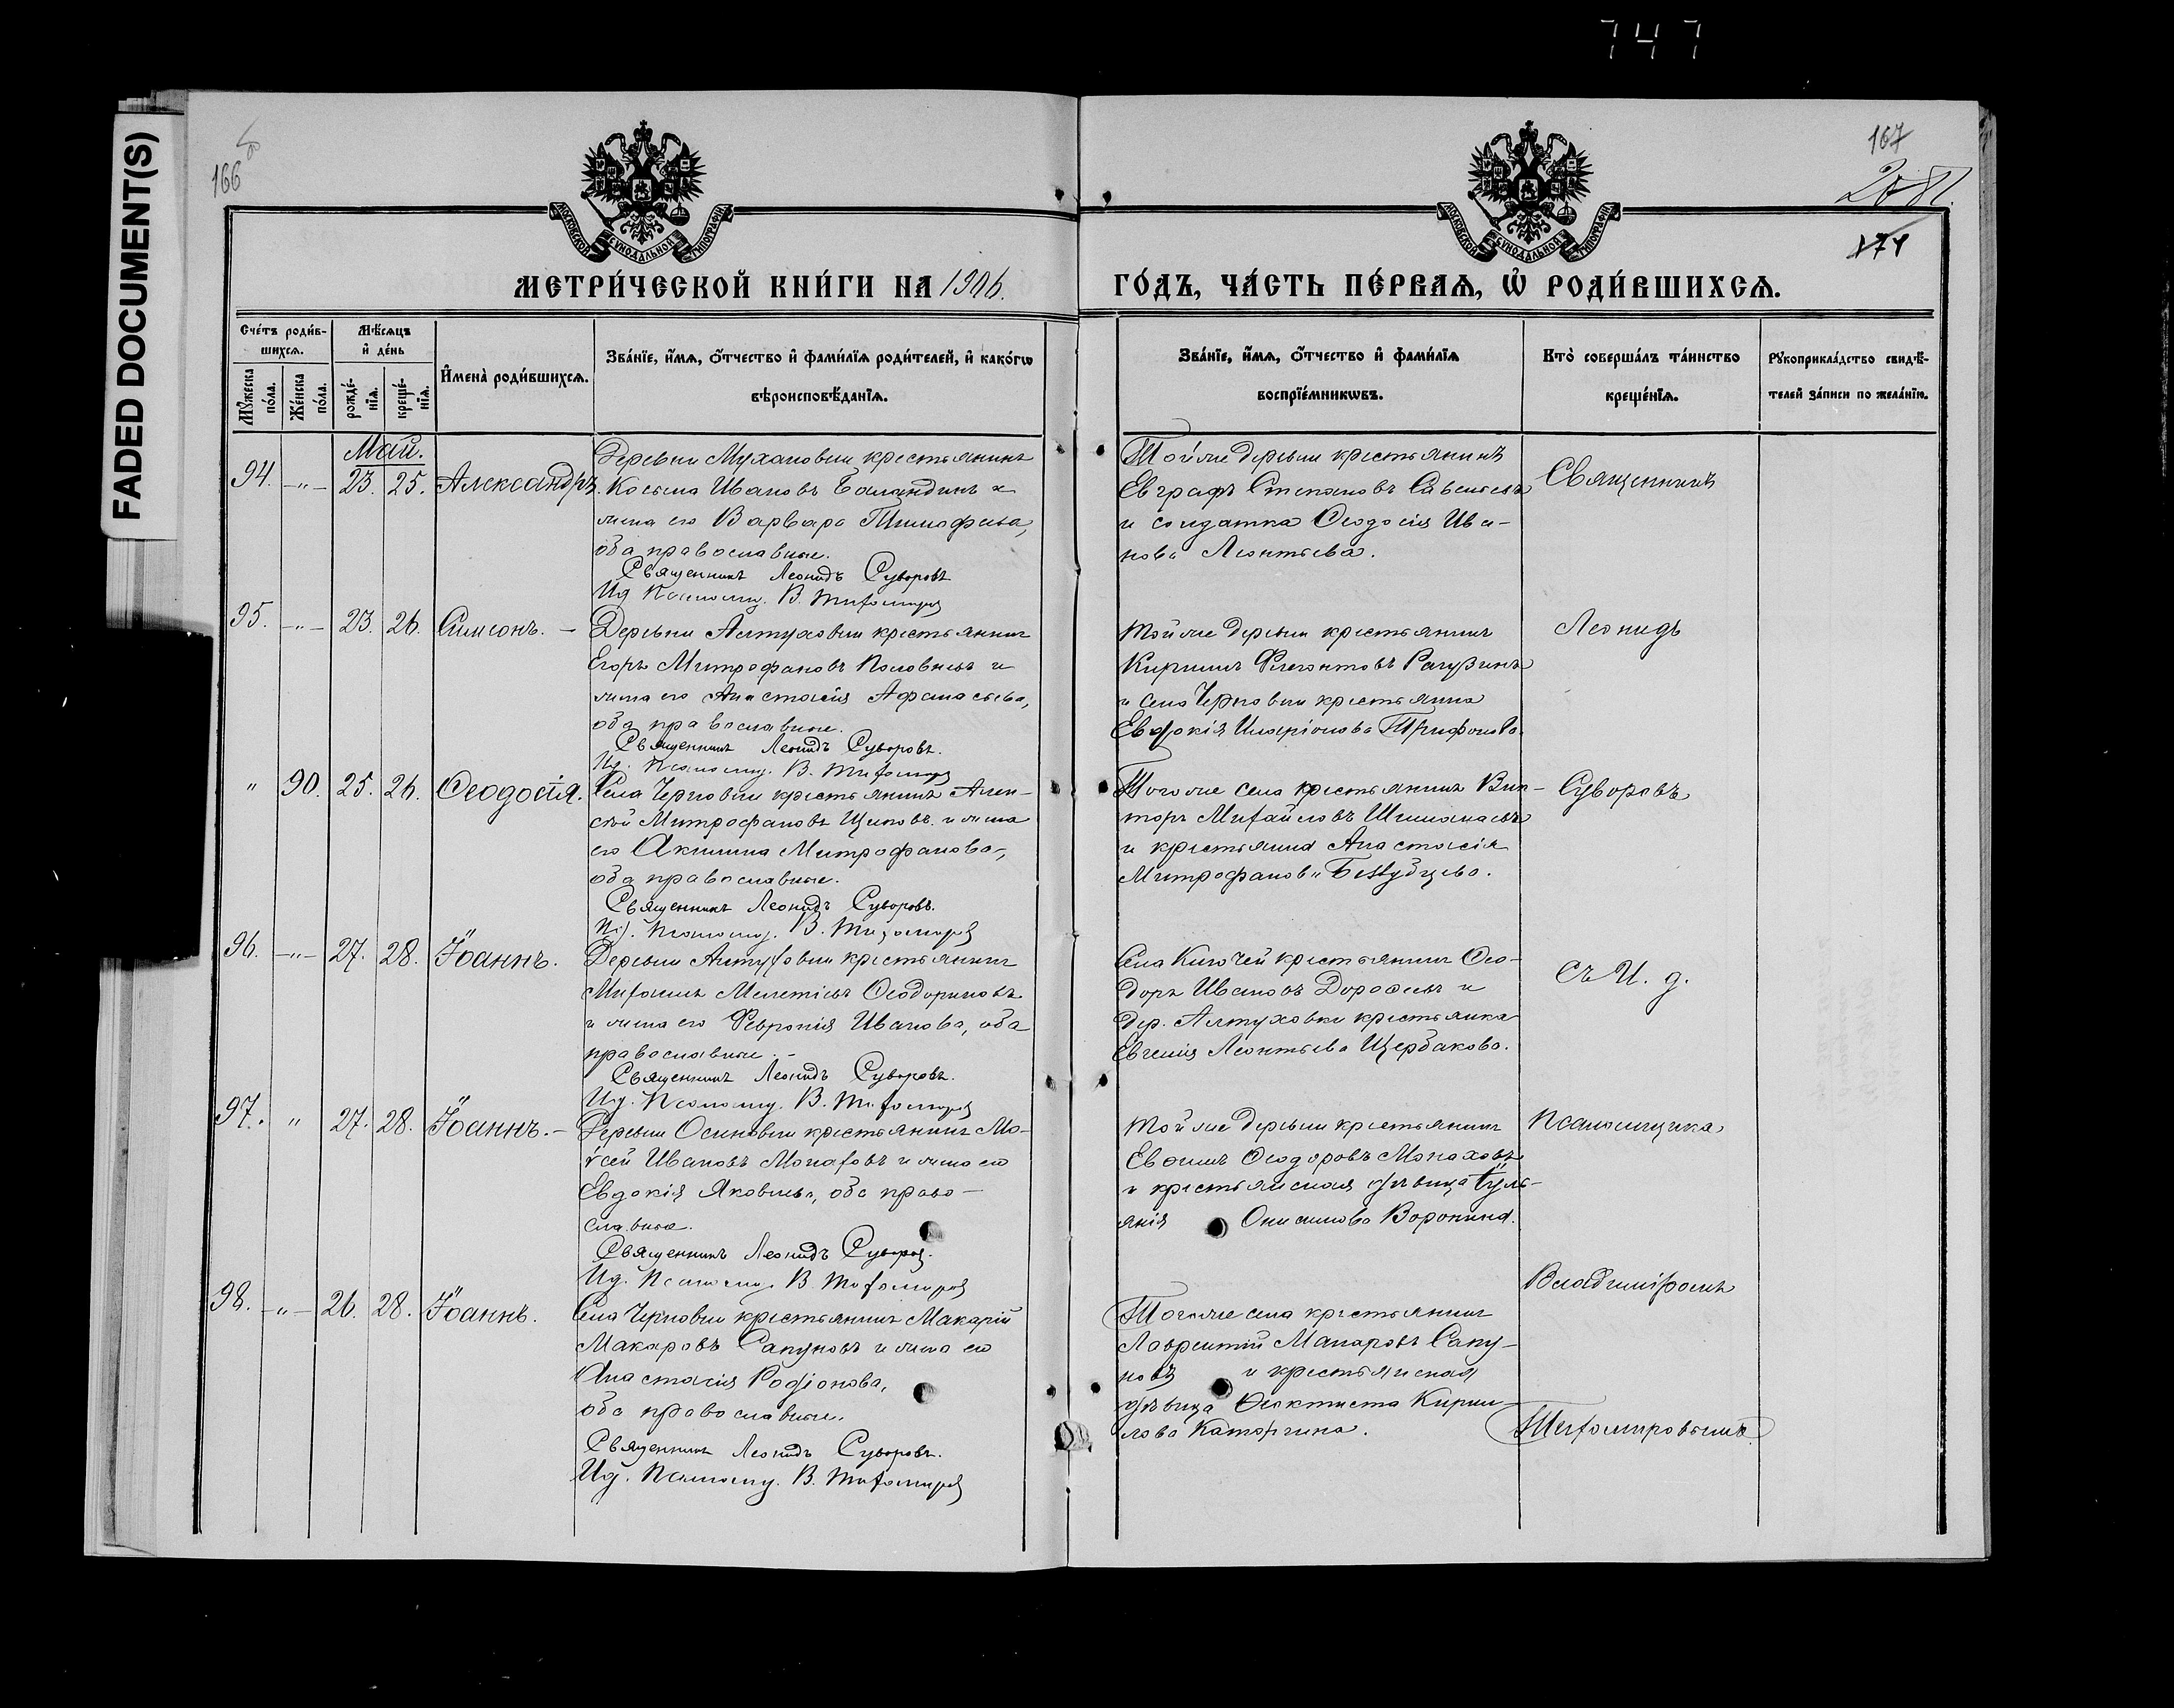 747
FADED DOCUMENT(S)
166
167
171
МОСКОВСКОЙ СѴНОДАЛЬНОЙ ТИПОГРАФІИ
МОСКОВСКОЙ СѴНОДАЛЬНОЙ ТИПОГРАФІИ
МЕТРИ́ЧЕСКОЙ КНИ́ГИ НА 1906.
ГО́ДЪ, ЧА́СТЬ ПЕ́РВАѦ, Ѡ҆ РОДИ́ВШИХСѦ.
Сче́тъ роди́в-
шихсѧ.
Мѣ́сѧцъ
и҆ де́нь
Мꙋ́жеска
по́ла.
Же́нска
по́ла.
рожде́-
нїѧ.
креще́-
нїѧ.
И҆мена̀ роди́вшихсѧ.
Зва́нїе, и҆́мѧ, ѻ҆́тчество и҆ фами́лїѧ роди́телей, и҆ како́гѡ
вѣроисповѣ́данїѧ.
Зва́нїе, и҆́мѧ, ѻ҆́тчество и҆ фами́лїѧ
воспрїе́мникѡвъ.
Кто̀ соверша́лъ та́инство
креще́нїѧ.
Рꙋкоприкла́дство свидѣ́-
телей за́писи по жела́нїю.
Май.
94. -"- 23. 25. Александръ.
Деревни Мухановки крестьянинъ
Косьма Ивановъ Баландинъ и
жена его Варвара Тимофеева,
оба православные.
Священникъ Леонидъ Суворовъ
Ид. Псаломщ. В. Тихомировъ
Тойже деревни крестьянинъ
Евграфъ Степановъ Савельевъ
и солдатка Ѳеодосія Ива-
нова Леонтьева.
Священникъ
95. -"- 23. 26. Симеонъ. -
Деревни Алтуховки крестьянинъ
Егоръ Митрофановъ Половневъ и
жена его Анастасія Афанасьева,
оба православные.
Священникъ Леонидъ Суворовъ.
Ид. Псаломщ. В. Тихомировъ
Тойже деревни крестьянинъ
Кириллъ Флегонтовъ Рагузинъ
и села Черновки крестьянка
Евдокія Иларіонова Трифонова.
Леонидъ
" 90. 25. 26. Ѳеодосія.
Села Черновки крестьянинъ Алек-
сѣй Митрофановъ Щеновъ и жена
его Акилина Митрофанова,
оба православные.
Священникъ Леонидъ Суворовъ.
Ид. Псаломщ. В. Тихомировъ
Тогоже села крестьянинъ Вик-
торъ Михайловъ Шишканевъ
и крестьянка Анастасія
Митрофанова Беззубцева.
Суворовъ
96. -"- 27. 28. Іоаннъ.
Деревни Алтуховки крестьянинъ
Михаилъ Мелетіевъ Ѳеодориновъ
и жена его Февронія Иванова, оба
православные. -
Священникъ Леонидъ Суворовъ.
Ид. Псаломщ. В. Тихомировъ
Села Ключей крестьянинъ Ѳео-
доръ Ивановъ Дороѳеевъ и
дер. Алтуховки крестьянка
Евгенія Леонтьева Щербакова.
съ И. д.
97. " 27. 28. Іоаннъ. -
Деревни Осиновки крестьянинъ Мо-
ѵсей Ивановъ Монаховъ и жена его
Евдокія Яковлева, оба право-
славные.
Священникъ Леонидъ Суворовъ.
Ид. Псаломщ. В. Тихомировъ
Тойже деревни крестьянинъ
Евѳимъ Ѳеодоровъ Монаховъ
и крестьянская дѣвица Іулі-
янія Онисимова Воронина.
Псаломщика
98. -"- 26. 28. Іоаннъ.
Села Черновки крестьянинъ Макарій
Макаровъ Сапуновъ и жена его
Анастасія Родіонова,
оба православные.
Священникъ Леонидъ Суворовъ.
Ид. Псаломщ. В. Тихомировъ
Тогоже села крестьянинъ
Лаврентій Макаровъ Сапу-
новъ и крестьянская
дѣвица Ѳеоктиста Кирил-
лова Каторгина.
Владиміромъ
Тихомировымъ.